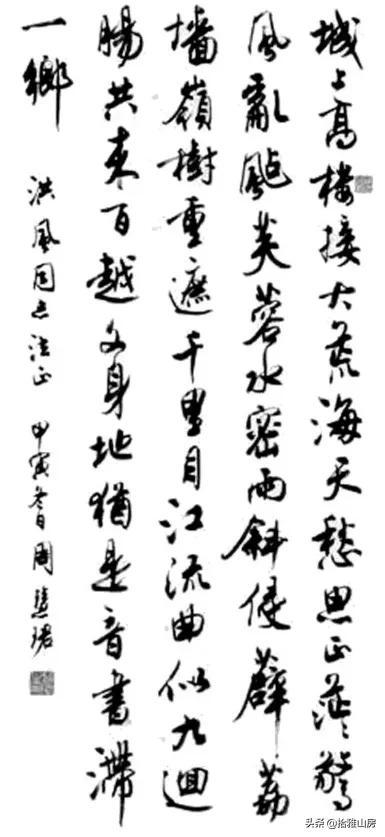 城上高樓接大荒海天愁思正茫〻驚
風亂颭芙蓉水密雨斜侵薜荔
墻嶺樹重遮千里目江流曲似九迴
腸共來百越文身地猶是音書滯
一鄉
洪風同志法正 甲寅冬日周慧珺
头条 @拾雅山房